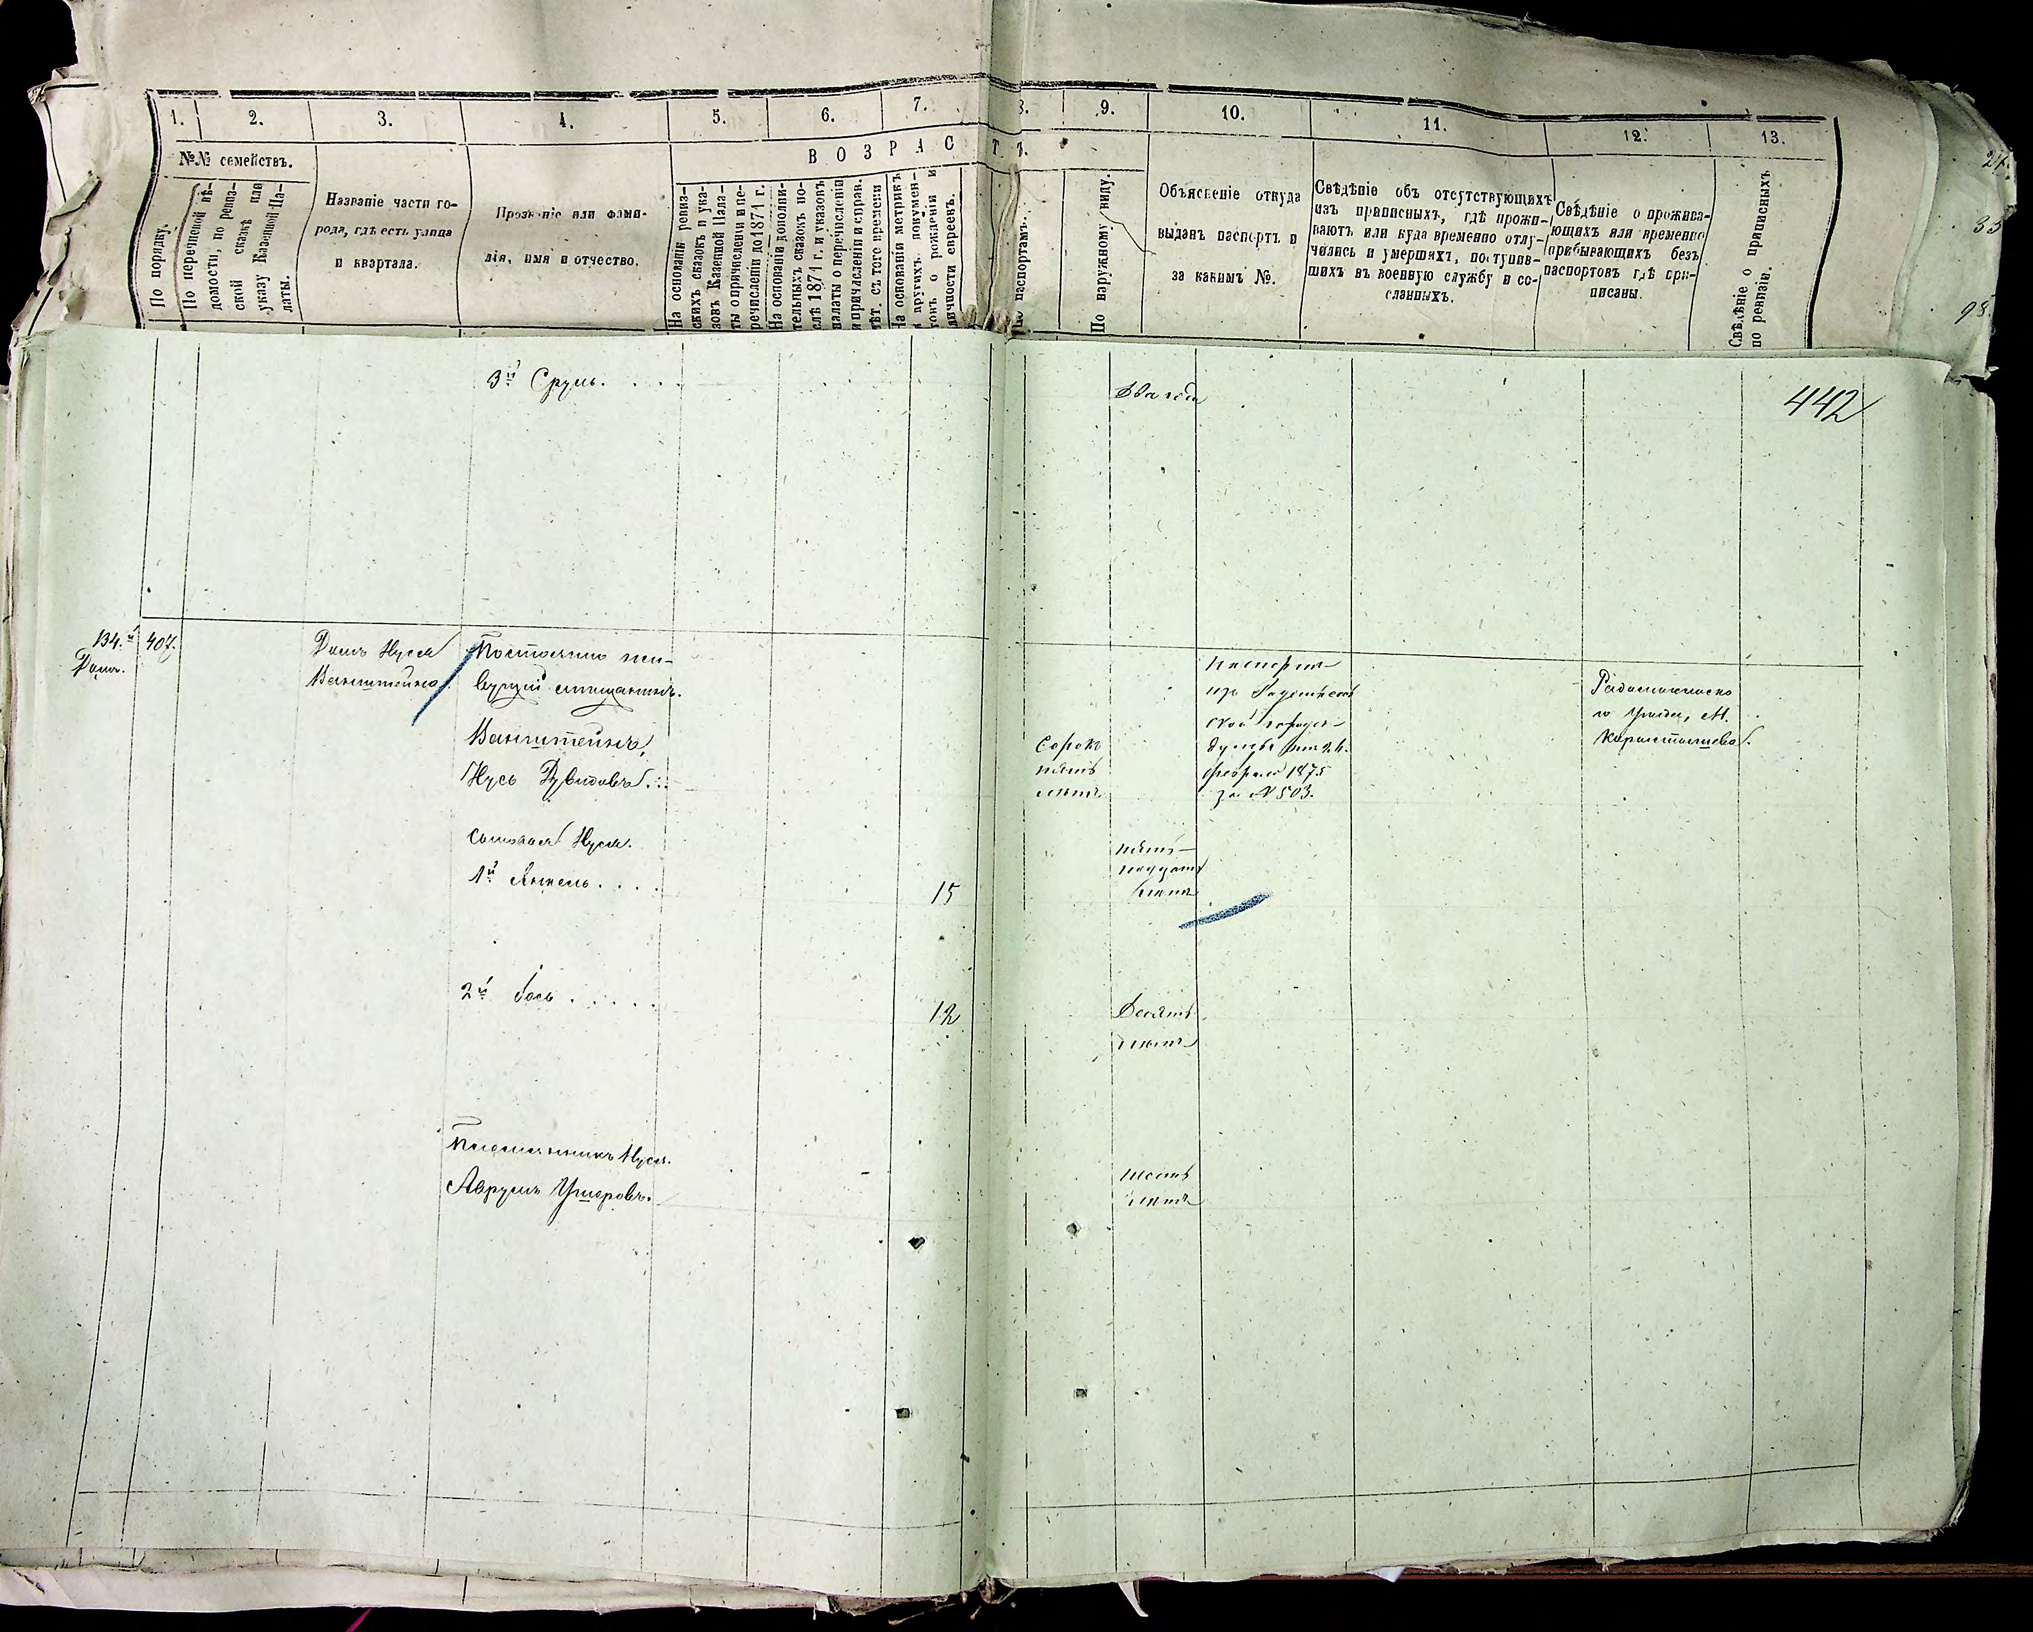 1. 2. 3. 4. 5. 6. 7. 8. 9. 10. 11. 12. 13.
№№ семействъ.
По порядку.
По перечневой вѣ-
домости, по ревиз-
ской сказкѣ или
указу Казенной Па-
латы.
Названіе части го-
рода, гдѣ есть улица
и квартала.
Прозваніе или фами-
лія, имя и отчество.
ВОЗРАСТЪ.
На основаніи ревиз-
скихъ сказокъ и ука-
зовъ Казенной Пала-
ты о причисленіи и пе-
речисленіи до 1871 г.
На основаніи дополни-
тельныхъ сказокъ по-
слѣ 1871 г. и указовъ
палаты о перечисленіи
и причисленіи и справ.
лѣт. съ того времени
На основаніи метрикъ
и другихъ докумен-
товъ о рожденіи и
личности евреевъ.
По паспортамъ.
По наружному виду.
Объясненіе откуда
выданъ паспортъ и
за какимъ №.
Свѣдѣніе объ отсутствующихъ
изъ приписныхъ, гдѣ прожи-
ваютъ или куда временно отлу-
чились и умершихъ, поступив-
шихъ въ военную службу и со-
сланныхъ.
Свѣдѣніе о прожива-
ющихъ или временно
прибывающихъ безъ
паспортовъ гдѣ при-
писаны.
Свѣдѣніе о приписныхъ
по ревизіи.
442
3й Сруль. . . .
134.й
Домъ.
407.
Домъ Нуся
Ванштейна.
Постоянно жи-
вущій мѣщанинъ.
Ванштейнъ,
Нусь Дувидовъ. . .
сорокъ
пять
лѣтъ
паспортъ
изъ
ской город.
думы отъ 26.
февраля 1875
за № 503.
Радомысльска-
го Уѣзда, М.
Коростышева.
сыновья Нуся.
1й Янкель. . . .
15
пят-
надцать
лѣтъ
2й Іось . . . . .
12
Десять
лѣтъ
Племянникъ Нуся.
Аврумъ Ушеровъ.
шесть
лѣтъ